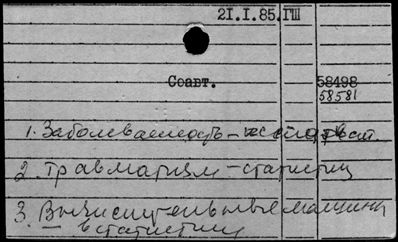 21.I.85.ГШ
Соавт.
58498
58581
1. Заболеваемость –
2. Травматизм – статистика
3. Вычислительные машины
– в статистике